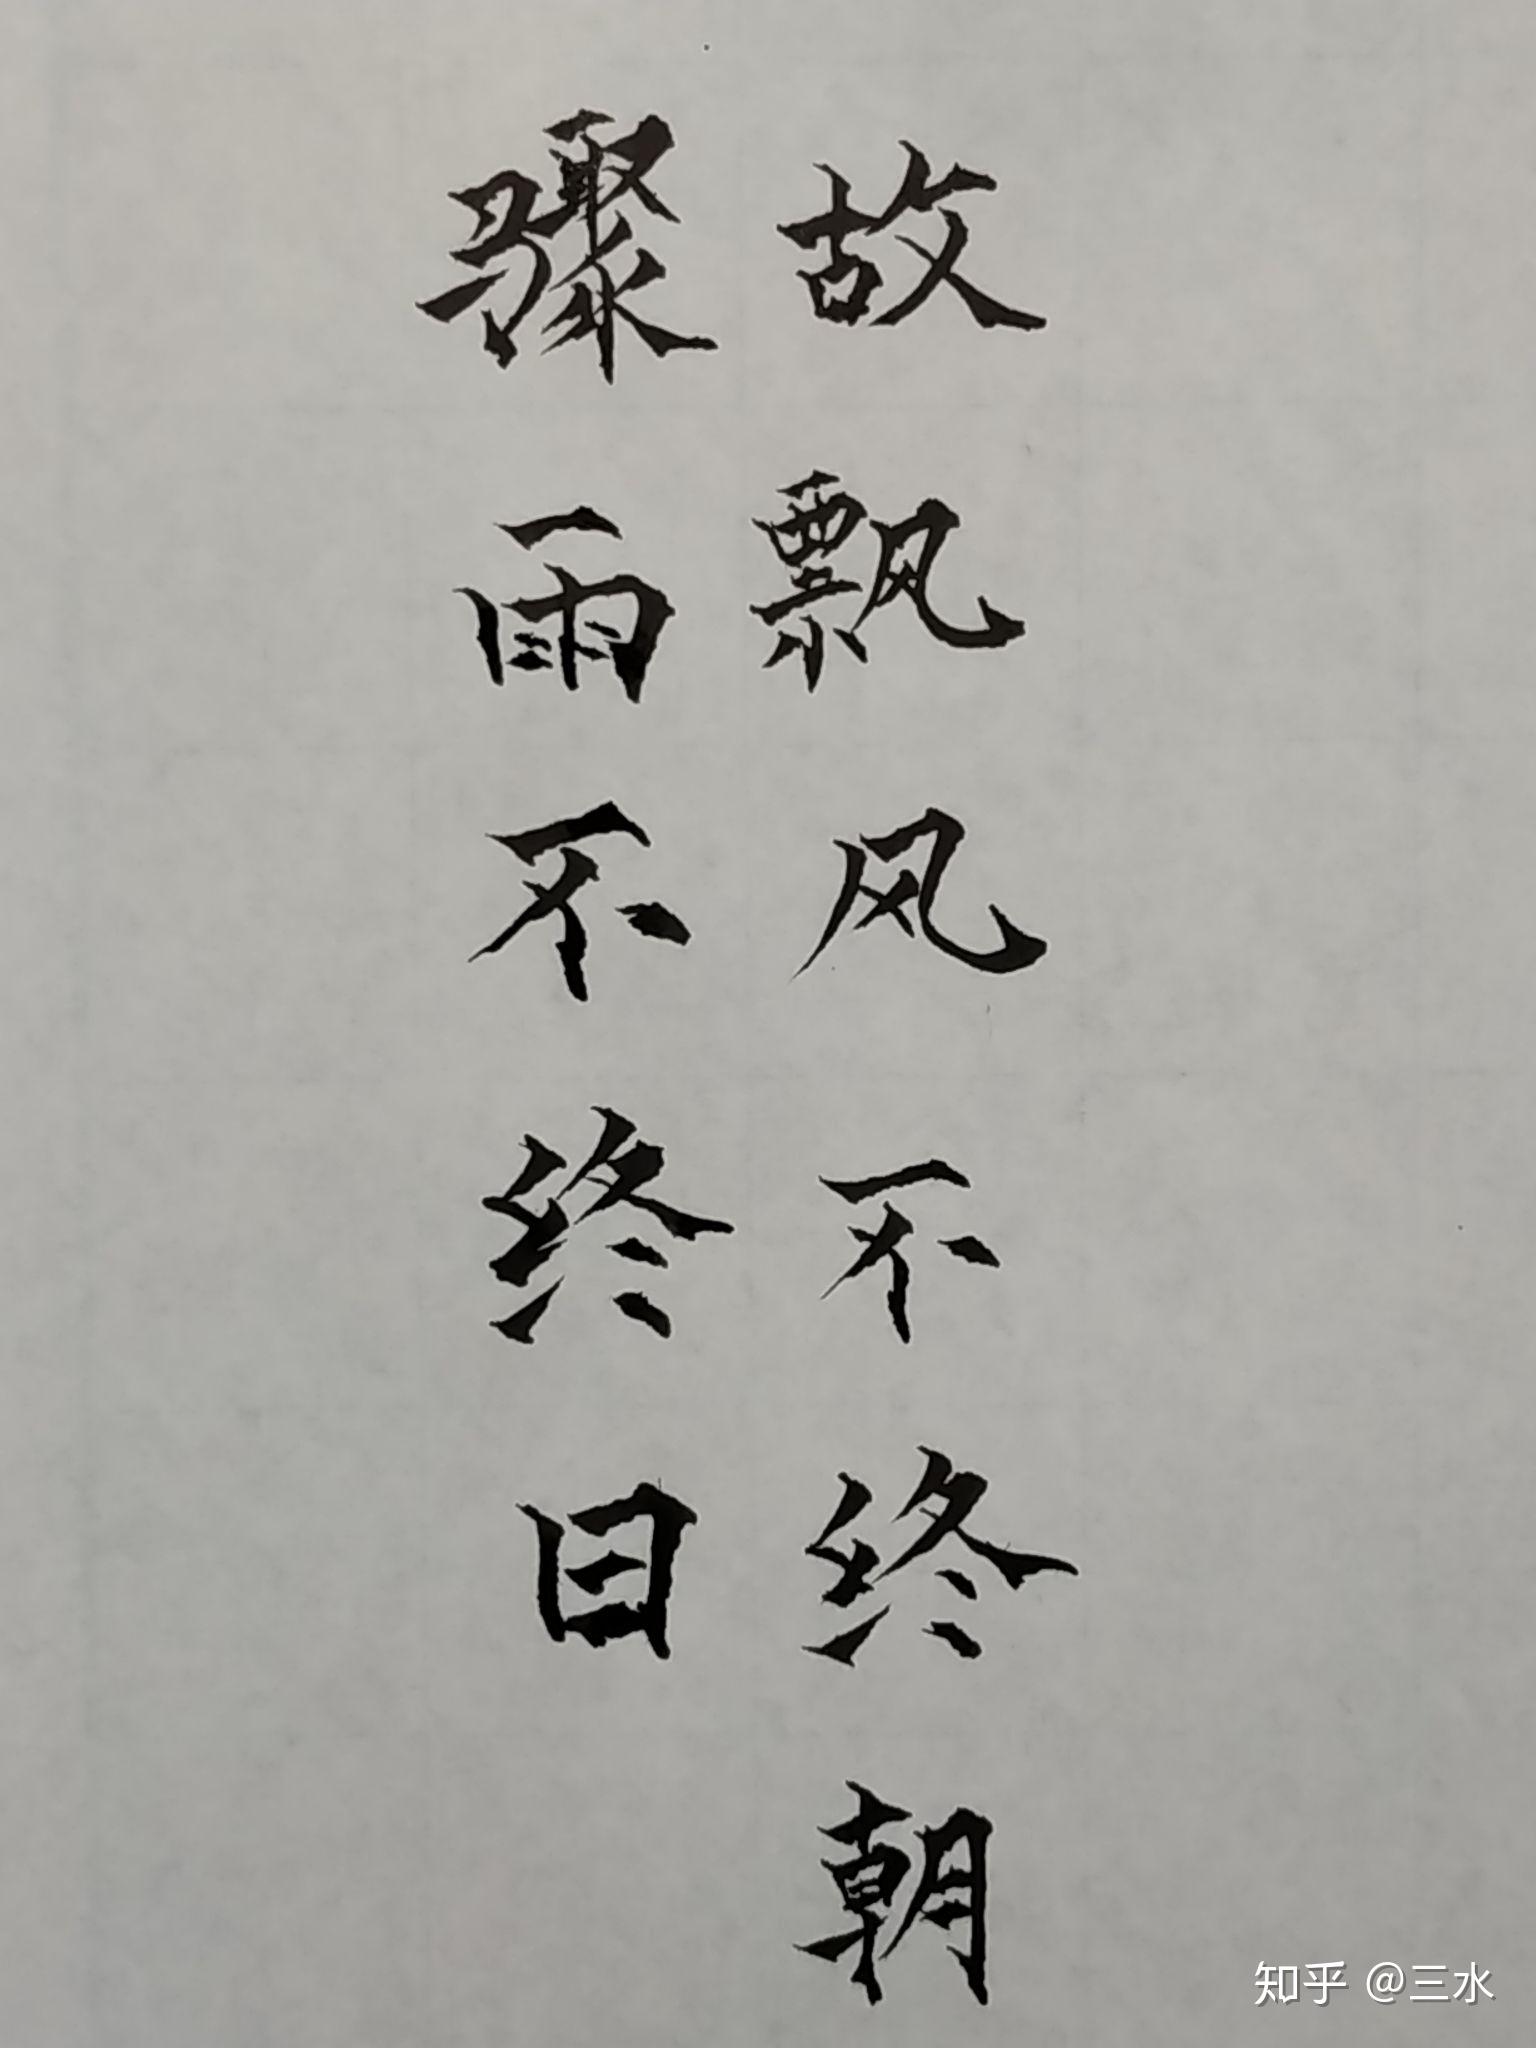 故飘风不终朝
骤雨不终日
知乎 @三水